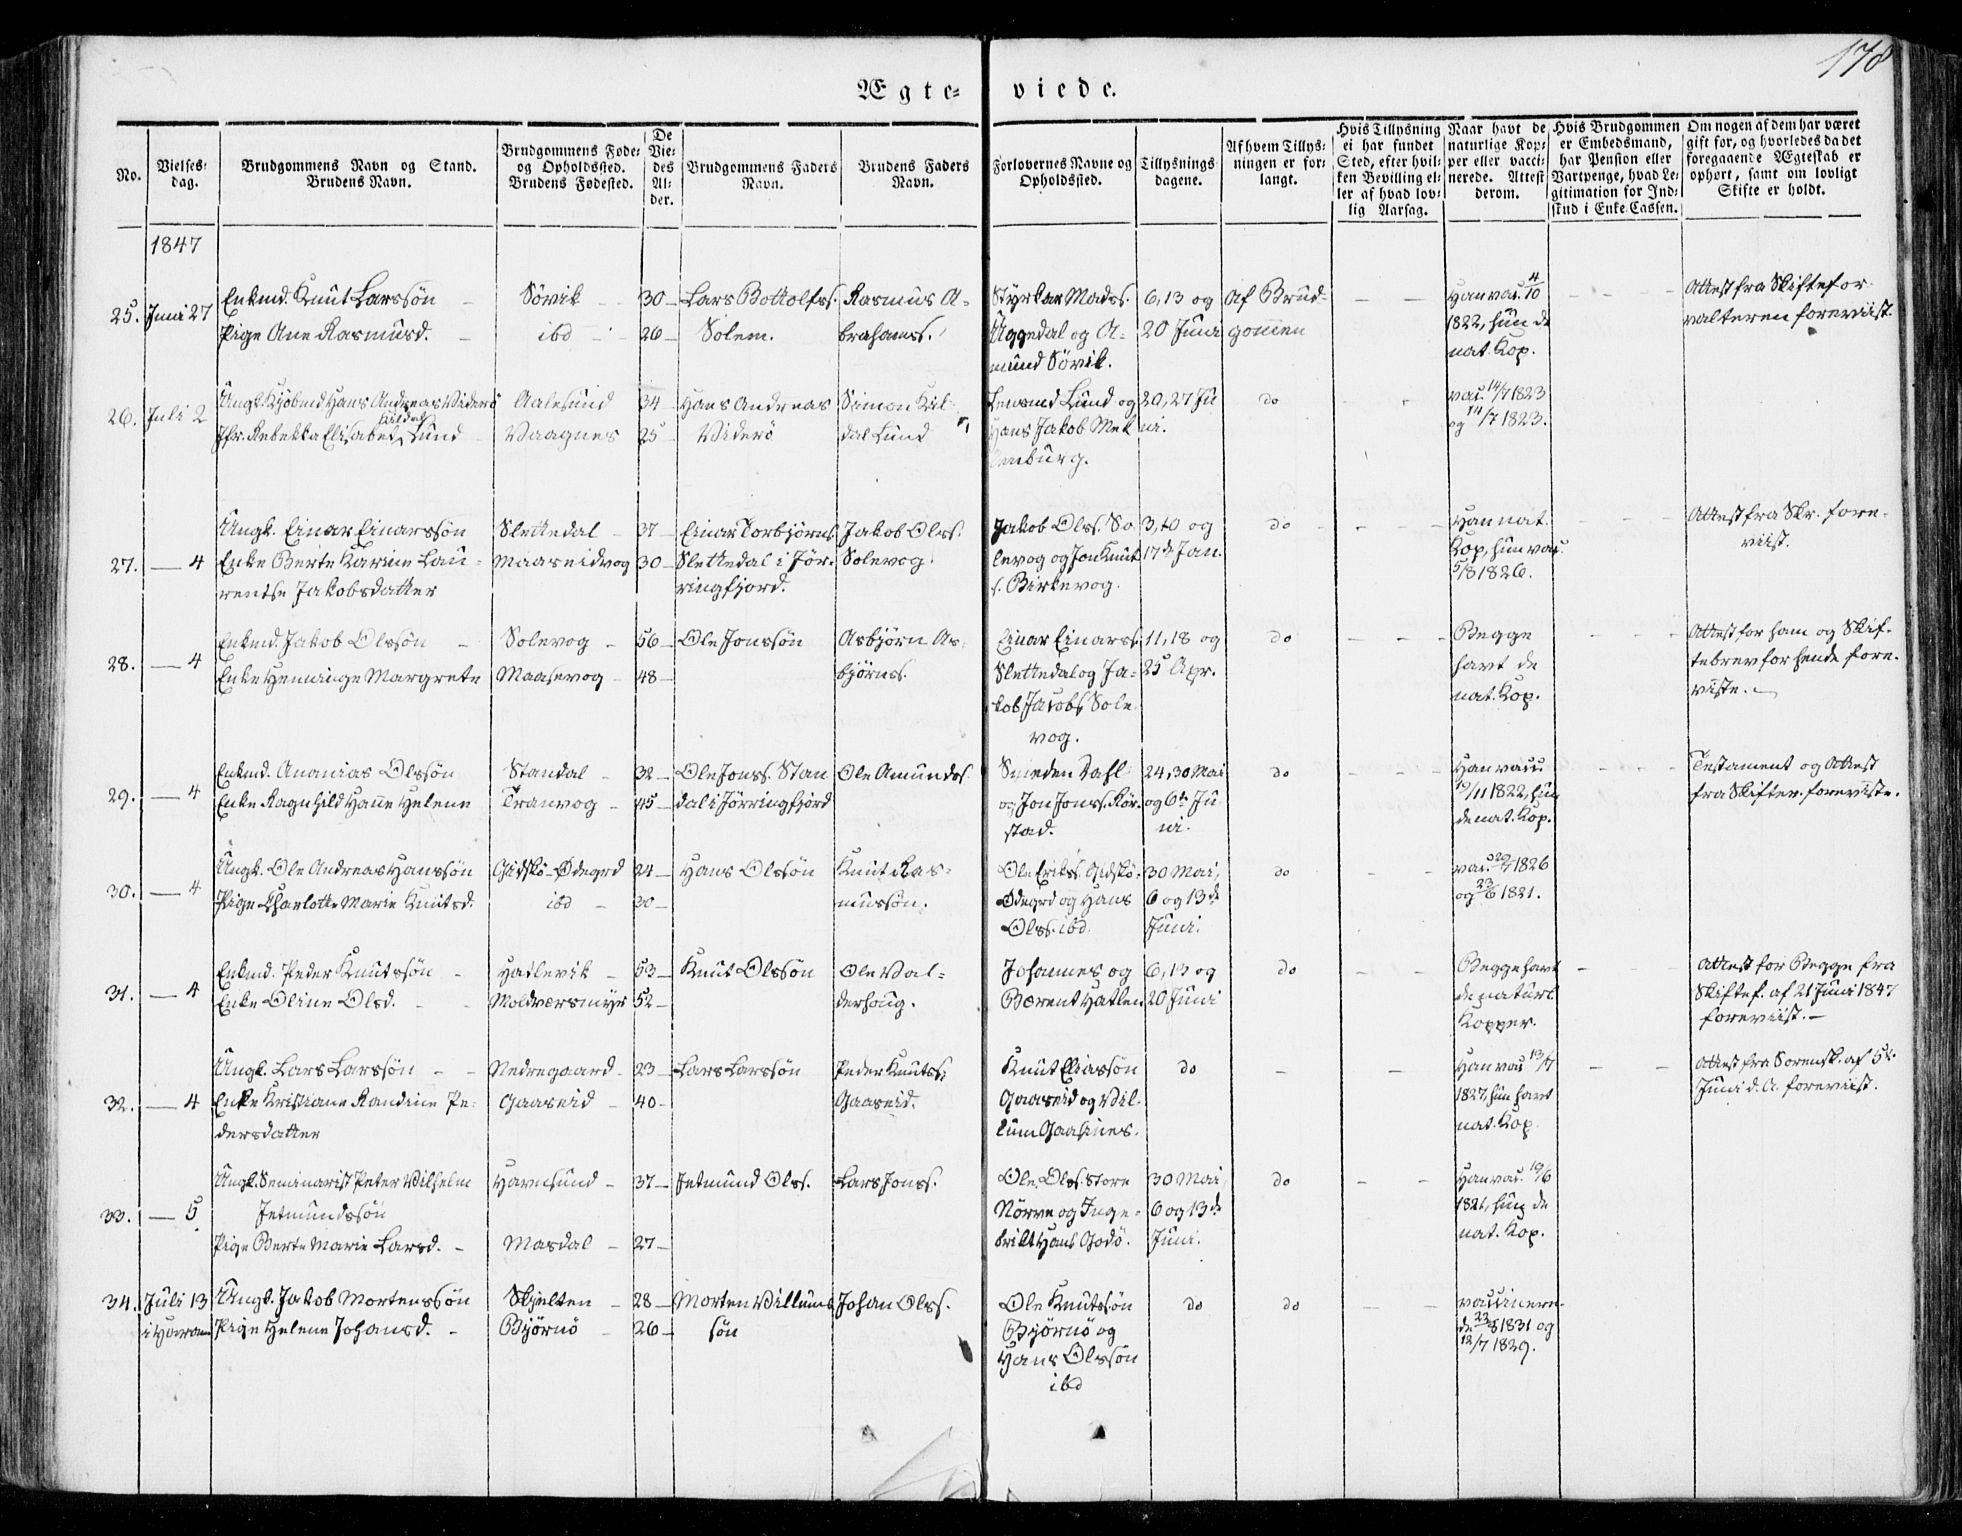 178
Ægte- viede.
No.
Vielses-
dag.
Brudgommens Navn og Stand.
Brudens Navn.
Brudgommens Føde-
og Opholdssted.
Brudens Fødested.
De
Vie-
des
Al-
der.
Brudgommens Faders
Navn.
Brudens Faders
Navn.
Forlovernes Navne og
Opholdssted.
Tillysnings
dagene.
Af hvem Tillys-
ningen er for-
langt.
Hvis Tillysning
ei har fundet
Sted, efter hvil-
ken Bevilling el-
ler af hvad lov-
lig Aarsag.
Naar havt de
naturlige Kop-
per eller vacci-
nerede. Attest
derom.
Hvis Brudgommen
er Embedsmand,
har Pension eller
Vartpenge, hvad Le-
gitimation for Ind-
skud i Enke-Cassen.
Om nogen af dem har været
gift før, og hvorledes da det
foregaaende Ægteskab er
ophørt, samt om lovligt
Skifte er holdt.
1847
25. Juni 27
Enkmd. Knut Larssön
Pige Ane Rasmusd.
Sövik
ibd
30
26
Lars Bottolfss.
Solem.
Rasmus A-
brahamss.
Styrkar Madss.
Aggedal og A-
mund Sövik.
6, 13 og
20 Juni
Af Brud-
gommen
Han vac. 4/10
1822, hun de
nat. Kop.
Attest fra Skiftefor-
valteren foreviist.
26. Juli 2
Ungk. Kjöbmd Hans Andreas Viderö
Jfr. Rebekka Elisabet Kildal Lund
Aalesund
Vaagnes
34
25
Hans Andreas
Viderö
Simon Kil-
dal Lund
Lensmd Lund og
Hans Jakob Mek
lenburg.
20, 27 Ju
ni.
do
vac. 14/7 1823
og 14/7 1823.
27. — 4
Ungk. Einar Einarssön
Enke Berte Karine Lau-
rentse Jakobsdatter
Slettedal
Maaseidvog
37
30
Einar Torbjörns.
Slettedal i Jör-
ringfjord.
Jakob Olss.
Solevog.
Jakob Olss. So
levog og Jon Knut
s. Birkevog.
3, 10 og
17de Jan.
do
Han nat.
Kop, hun vac.
5/8 1826.
Attest fra Skr. fore-
viist.
28. — 4
Enkmd. Jakob Olssön
Enke Henninge Margrete
Solevog
Maasevog
56
48
Ole Jonssön
Asbjörn As-
björnss.
Einar Einarss.
Slettedal og Ja-
kob Jacobs. Sole
vog.
11, 18 og
25 Apr.
do
Begge
havt de
nat. Kop.
Attest for ham og Skif-
tebrev for hende fore-
viste.
29. — 4
Enkmd. Ananias Olssön
Enke Ragnhild Hanne Helene
Standal
Tranvog
32
45
Ole Jonss. Stan
dal i Jörringfjord
Ole Amundss.
Smeden Dahl
og Jon Jonss. Rör-
stad.
24, 30 Mai
og 6te Ju
ni.
do
Han vacc.
19/11 1822, hun
de nat. Kop.
Testament og Attest
fra Skifter. foreviste.
30. — 4
Ungk. Ole Andreas Hanssön
Pige Charlotte Marie Knutsd.
Gidskö-Ödegrd
ibd
24
30
Hans Olssön
Knut Ras-
mussön.
Ole Erikss. Gidskö-
Ödegrd og Hans
Olss. ibd.
30 Mai,
6 og 13de
Juni.
do
vac. 20/7 1826
og 23/6 1821.
31. — 4
Enkmd. Peder Knutssön
Enke Oline Olsd.
Hatlevik
Moldversmyr
53
52
Knut Olssön
Ole Val-
derhoug.
Johannes og
Bærent Hatlen
6, 13 og
20 Juni
do
Begge havt
de naturl.
Kopper.
Attest for Begge fra
Skiftef. af 21 Juni 1847
foreviist.
32. — 4
Ungk. Lars Larssön
Enke Kristiane Randine Pe-
dersdatter
Nedregaard
Gaaseid
23
40
Lars Larssön
Peder Knutss.
Gaaseid.
Knut Eliassön
Gaaseid og Vil-
lum Gaasnes.
do
Han vac 13/7
1827, hun havt
nat. Kop.
Attest fra Sorensk. af 5te
Juni d. A. foreviist.
33. — 5
Ungk. Seminarist Peter Vilhelm
Jetmundssön
Pige Berte Marie Larsd.
Havnsund
Masdal
37
27
Jetmund Olss.
Lars Jonss.
Ole Olss. Store
Nörve og Inge-
brikt Hans Godö.
30 Mai,
6 og 13de
Juni.
do
Han vac. 19/6
1821, hun de
nat. Kop.
34. Juli 13
i Haram
Ungk. Jakob Mortenssön
Pige Helene Johansd.
Skjelten
Björnö
28
26
Morten Villums
sön
Johan Olss.
Ole Knutssön
Björnö og
Hans Olssön
ibd
do
do
vaccinere-
de 23/8 1831 og
12/7 1829.